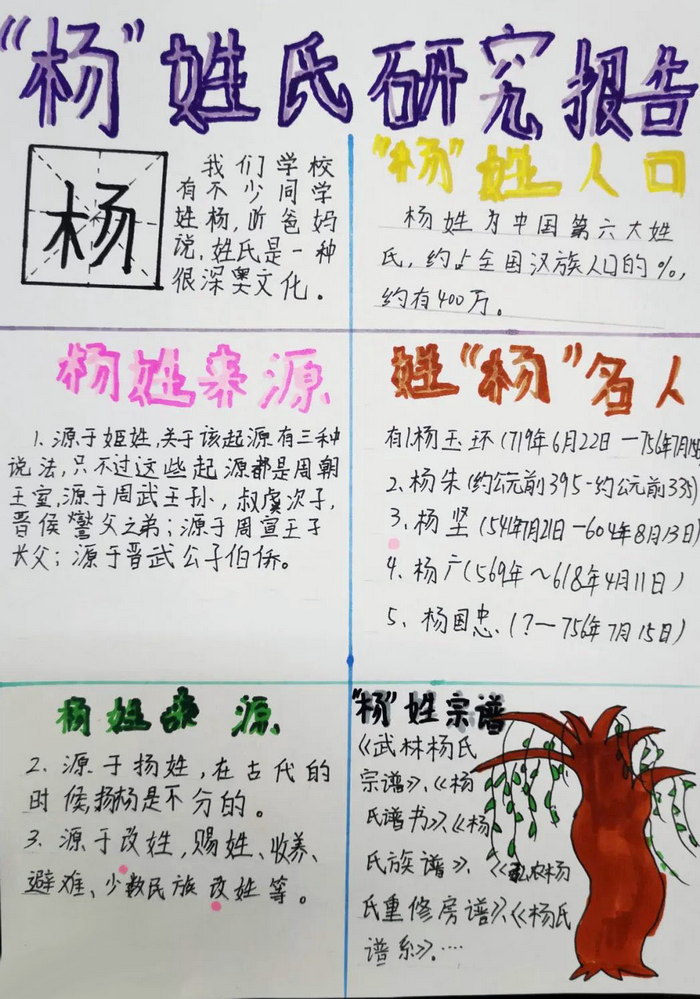 “杨”姓氏研究报告
杨
我们学校
有不少同学
姓杨,听爸妈
说,姓氏是一种
很深奥文化。
“杨”姓人口
杨姓为中国第六大姓
氏,约占全国汉族人口的%,
约有400万。
杨姓来源
1. 源于姬姓,关于该起源有三种
说法,只不过这些起源都是周朝
王室,源于周武王孙,叔虞次子,
晋侯燮父之弟;源于周宣王子
长父;源于晋武公子伯侨。
姓“杨”名人
有1.杨玉环(719年6月22日—756年7月15日)
2.杨朱(约公元前395-约公元前335)
3、杨坚(541年7月21日—604年8月13日)
4、杨广(569年~618年4月11日)
5、杨国忠(?—756年7月15日)
杨姓来源
2. 源于扬姓,在古代的
时候,扬杨是不分的。
3. 源于改姓,赐姓、收养、
避难、少数民族改姓等。
“杨”姓宗谱
《武林杨氏
宗谱》、《杨
氏谱书》、《杨
氏族谱》、《弘农杨
氏重修房谱》、《杨氏
谱系》。…